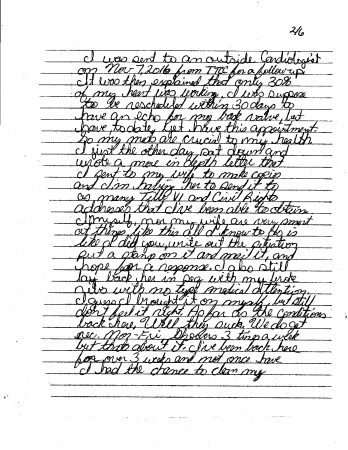 2/6
I was sent to an outside Cardiologist
on Nov 7 2016 from TTC for a follow up
It was then explained that only 30%
of my heart was working. I was suppose
to be rescheduled within 30 days to
have an echo for my bad valve, but
have to date yet have this appointment.
So my meds are crucial to my health
I just the other day sat down and
wrote a more in depth letter that
I sent to my wife to make copies
and I'm having her to send it to
as many Title VI and Civil Rights
addresses that I've been able to obtain
I myself, nor my wife are very smart
at things like this all I know to do is
like I did you, write out the petition
put a stamp on it and mail it, and
hope for a response. I also still
lay back here in seg with my broke
ribs with no medical attention
I guess I brought it on myself, but still
don't feel it right. As far as the conditions
back here, Well they suck. We do get
rec. Mon-Fri, Showers 3 times a week
but that's about it. I've been back here
for over 3 weeks and not once have
I had the chance to clean my